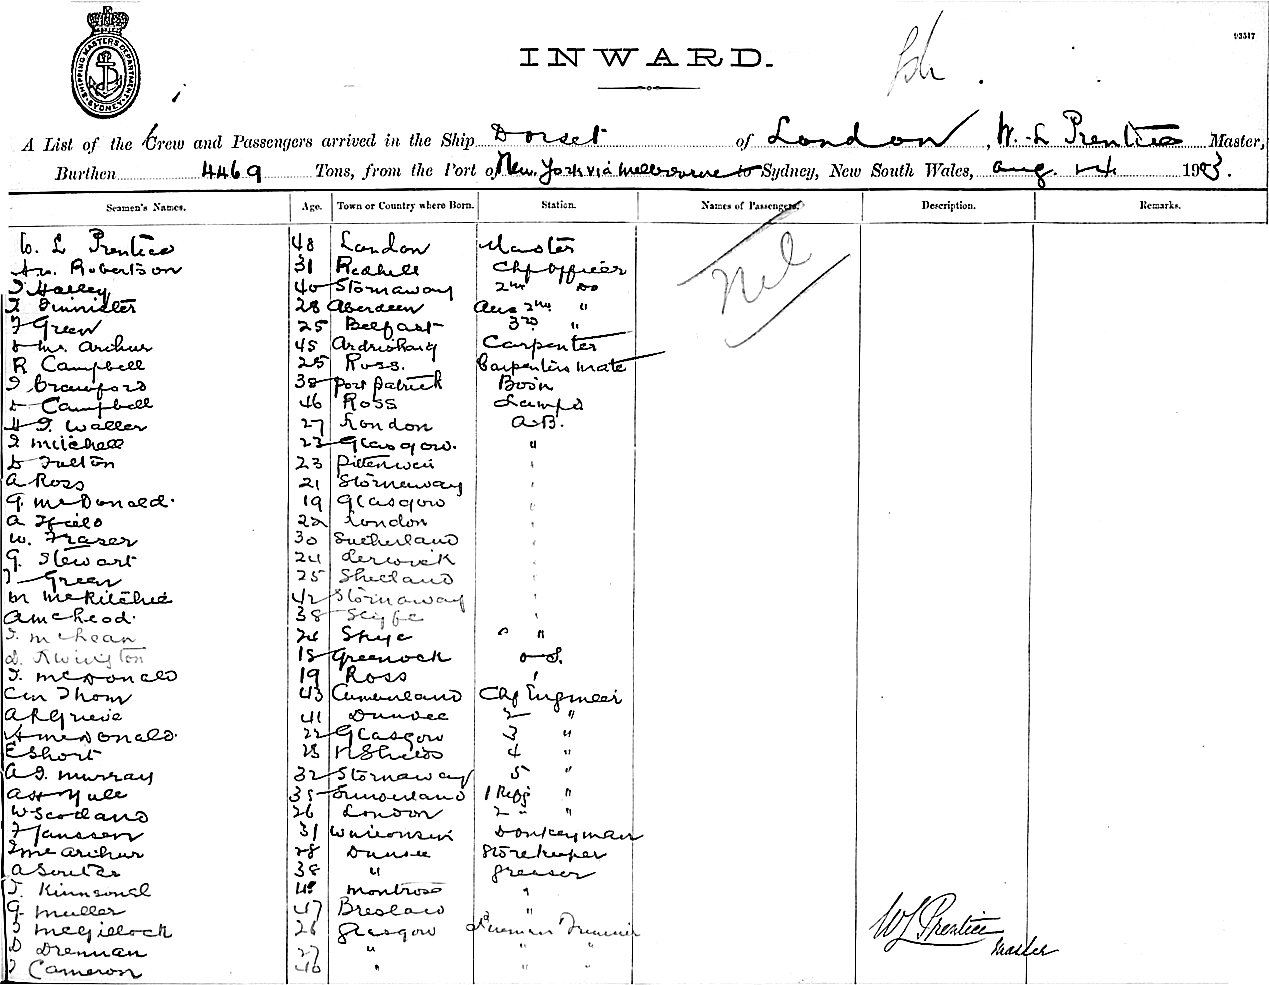 SHIPPING MASTER'S DEPARTMENT SYDNEY
93517
INWARD.
A List of the Crew and Passengers arrived in the Ship Dorset of London, W. L Prentice Master,
Burthen 4469 Tons, from the Port of New York via Melbourne to Sydney, New South Wales, Aug. 14 1903.
Seamen's Names. Age. Town or Country where Born. Station. Names of Passengers. Description. Remarks.
W. L Prentice 48 London Master
Robertson 31 Redhill Chf officer
Halley 40 Stornaway 2nd Do
28 Aberdeen 2nd "
Green 25 Belfast 3rd "
Mc Arthur 45 Carpenter
R Campbell 25 Ross. Carpenters mate
Crawford 38 Port Patrick Bosn
Campbell 46 Ross Lamps
Waller 27 London A.B.
Mitchell 23 Glasgow. "
Fulton 23 "
A Ross 21 Stornaway "
G. McDonald. 19 Glasgow "
A London "
W. Fraser 30 Sutherland "
G. Stewart 24 Lerwick "
Green 25 Shetland "
M McRitchie 42 Stornaway "
A McLeod. 38 "
McLean Skye " "
18 Greenock O.S.
McDonald 19 Ross "
Thom 43 Cumberland Chf Engineer
A R Grieve 41 Dundee 2 "
McDonald. 22 Glasgow 3 "
E Short 28 N Shields 4 "
Murray 32 Stornaway 5 "
Yule 35 Sunderland 1 Refg "
W Scotland 26 London 2 "
Janssen 31 Donkeyman
McArthur 28 Dundee Storekeeper
A Souter 38 " greaser
48 Montrose "
G. Muller 47 Breslau "
26 Glasgow Fireman Trimmer
D Drennan 27 " " "
Cameron 40 " " "
Nil
W L Prentice
Master